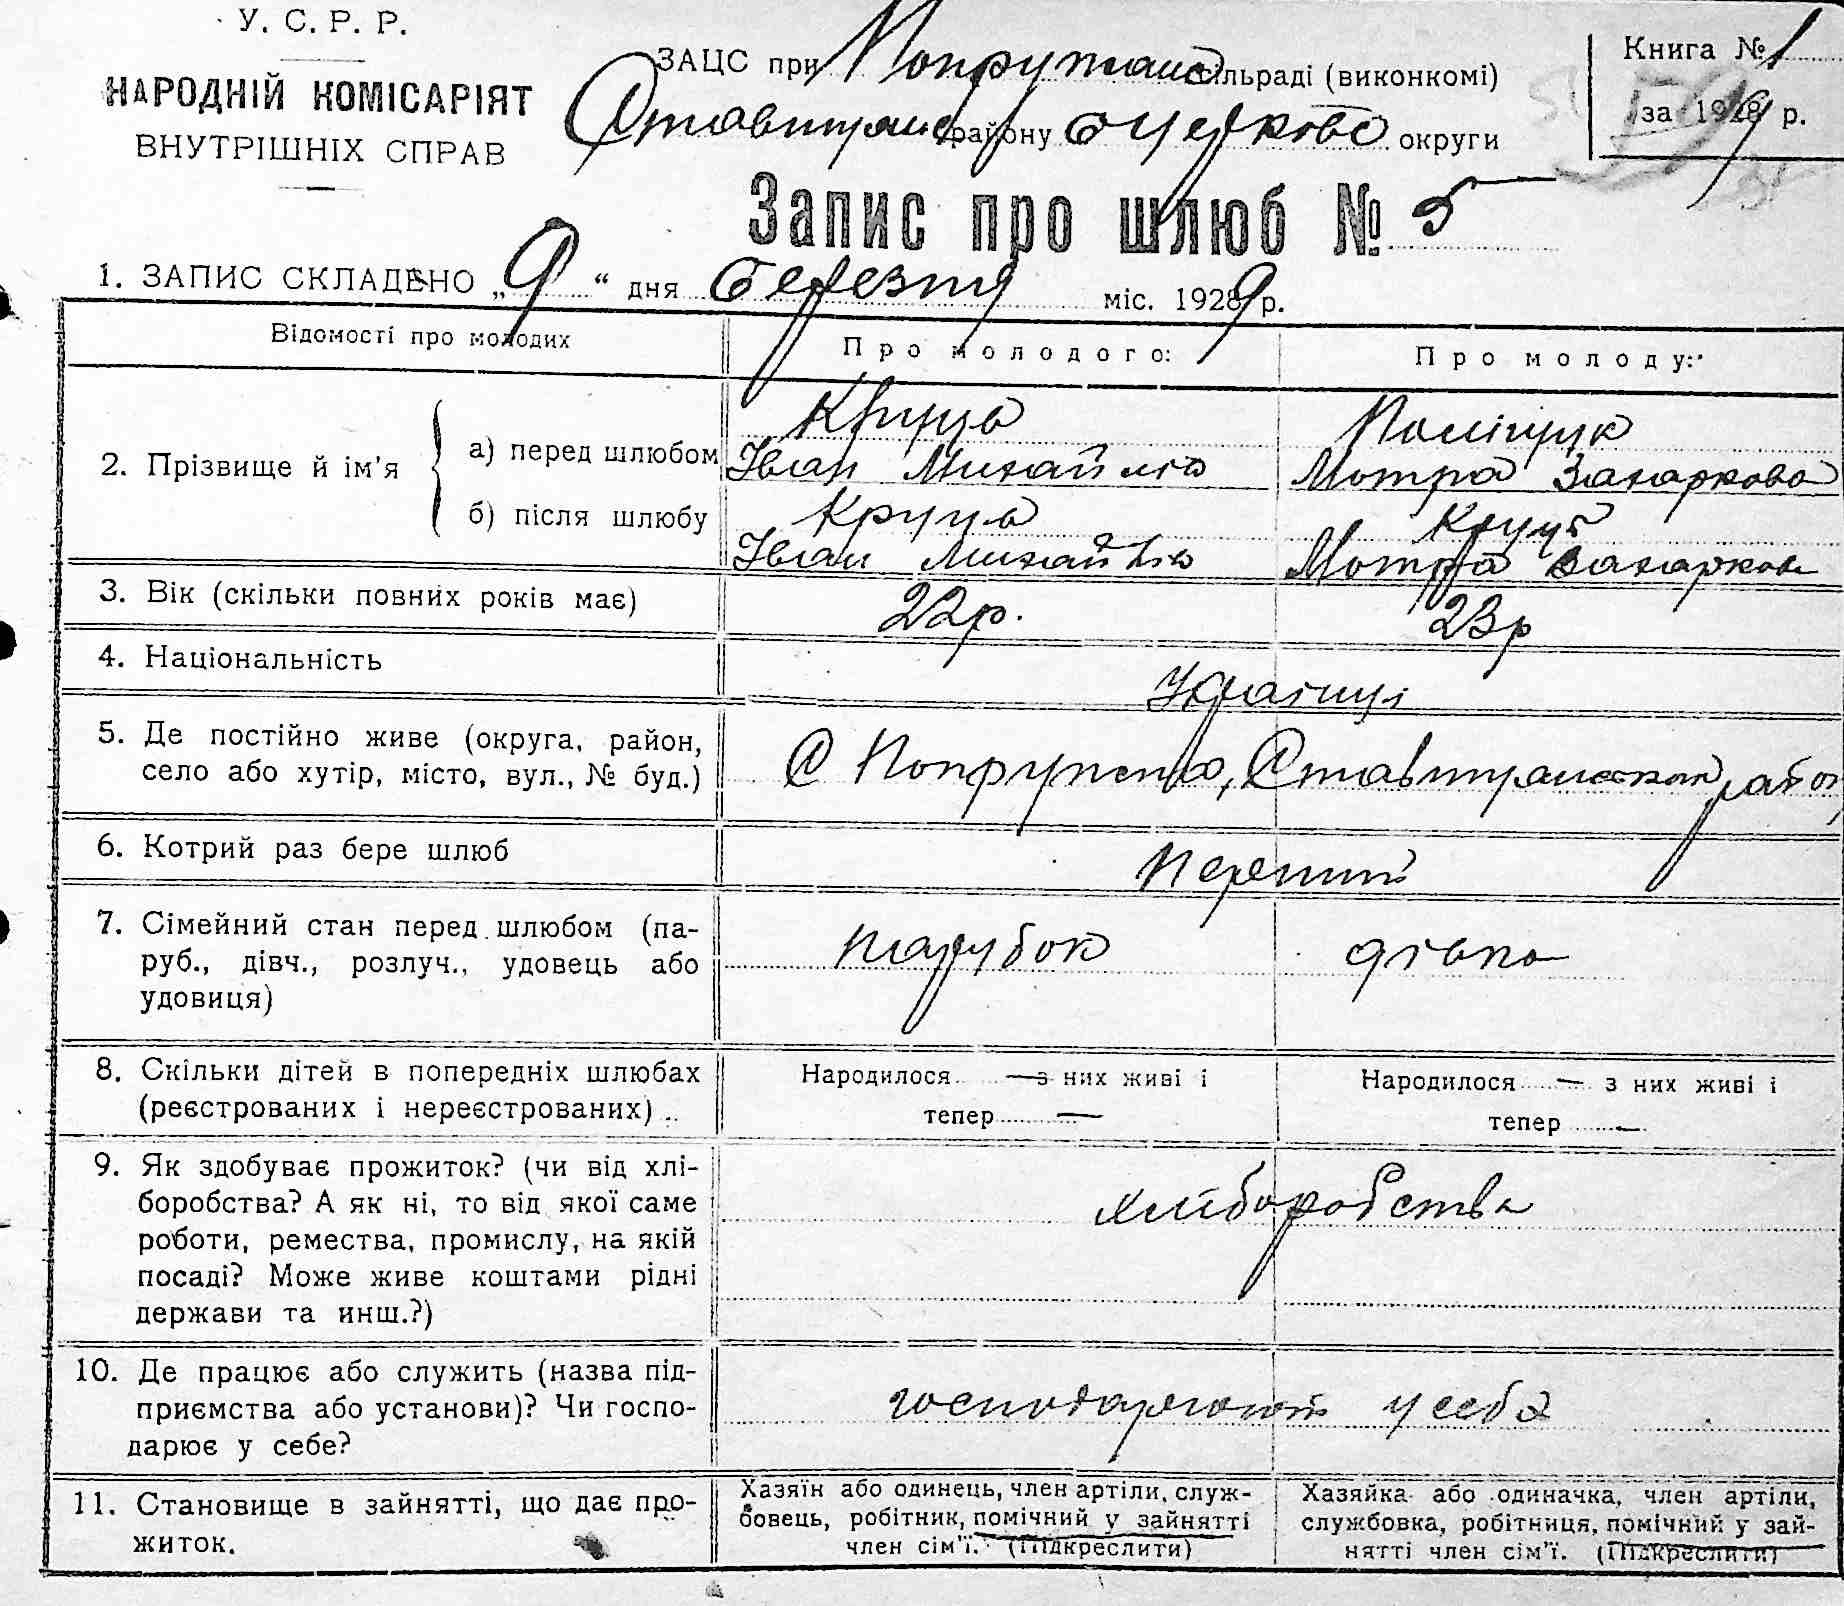 У. С. Р. Р.
НАРОДНІЙ КОМІСАРІЯТ
ВНУТРІШНІХ СПРАВ
ЗАЦС при Попружан сільраді (виконкомі)
Ставищан району Б Церковс округи
Книга № 1
за 1929 р.
Запис про шлюб № 5
1. ЗАПИС СКЛАДЕНО „9“ дня Березня міс. 1929 р.
Відомості про молодих
Про молодого:
Про молоду:
2. Прізвище й ім’я
а) перед шлюбом
Круць
Поліщук
Іван Михайлів
Мотра Захаркова
б) після шлюбу
Круць
Круць
Іван Михайлів
Мотра Захаркова
3. Вік (скільки повних років має)
22р.
23р
4. Національність
Українці
5. Де постійно живе (округа, район,
село або хутір, місто, вул., № буд.)
С Попружна, Ставищанськ район
6. Котрий раз бере шлюб
Перший
7. Сімейний стан перед шлюбом (па-
руб., дівч., розлуч., удовець або
удовиця)
парубок
дівка
8. Скільки дітей в попередніх шлюбах
(реєстрованих і нереєстрованих)
Народилося — з них живі і
тепер —
Народилося — з них живі і
тепер —
9. Як здобуває прожиток? (чи від хлі-
боробства? А як ні, то від якої саме
роботи, ремества, промислу, на якій
посаді? Може живе коштами рідні
держави та инш.?)
хліборобства
10. Де працює або служить (назва під-
приємства або установи)? Чи госпо-
дарює у себе?
господарюють у себе
11. Становище в зайнятті, що дає про-
житок.
Хазяїн або одинець, член артіли, служ-
бовець, робітник, помічний у зайнятті
член сім’ї. (Підкреслити)
Хазяйка або одиначка, член артіли,
службовка, робітниця, помічний у зай-
нятті член сім’ї. (Підкреслити)